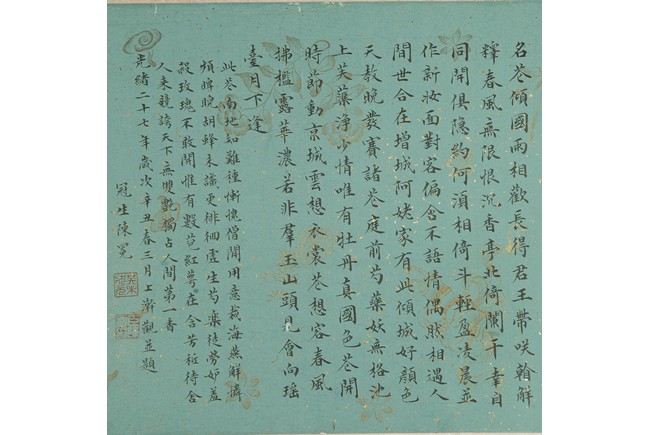 名花傾國兩相歡長得君王帶咲看解
釋春風無限恨沉香亭北倚闌干幸自
同開俱隱約何須相倚斗輕盈凌晨並
作新妝面對客偏含不語情偶然相遇人
間世合在增城阿姥家有此傾城好顏色
天教晚發賽諸花庭前芍藥妖無格池
上芙蕖淨少情唯有牡丹真國色花開
時節動京城雲想衣裳花想容春風
拂檻露華濃若非羣玉山頭見會向瑤
臺月下逢
此花南地知難種慚愧僧閒用意栽海燕解憐
頻睥睨胡蜂未識更徘徊虛生芍藥徒勞妒羞
殺玫瑰不敢開惟有數苞紅萼在含芳秪待舍
人來競誇天下無雙艷獨占人間第一香
光緒二十七年歲次辛丑春三月上澣觀並題
冠生陳冕